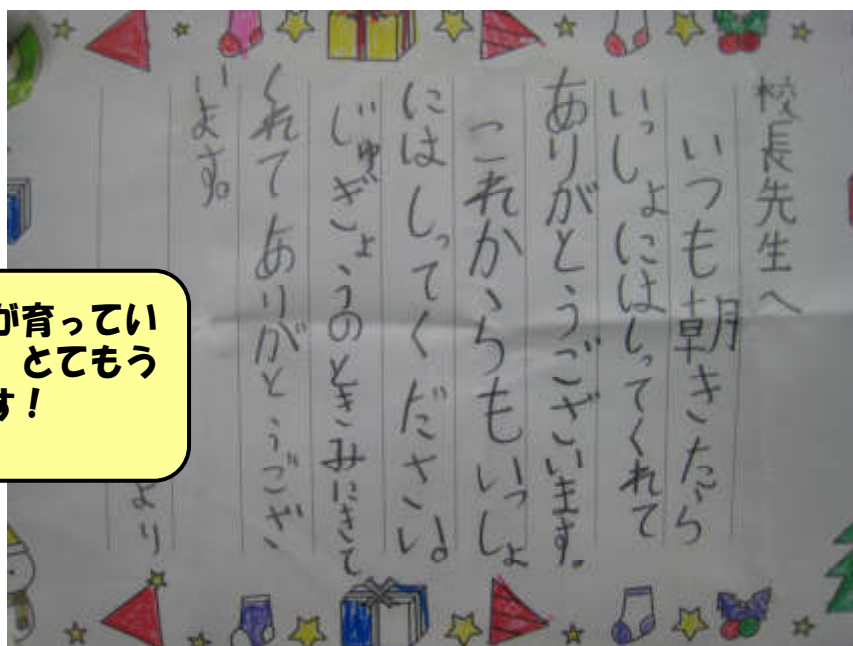 校長先生へ
いつも朝きたら
いっしょにはしってくれて
ありがとうございます。
これからもいっしょ
にはしってください。
じゅぎょうのときみにきて
くれてありがとうござい
います。
より
が育ってい
とてもう
す!